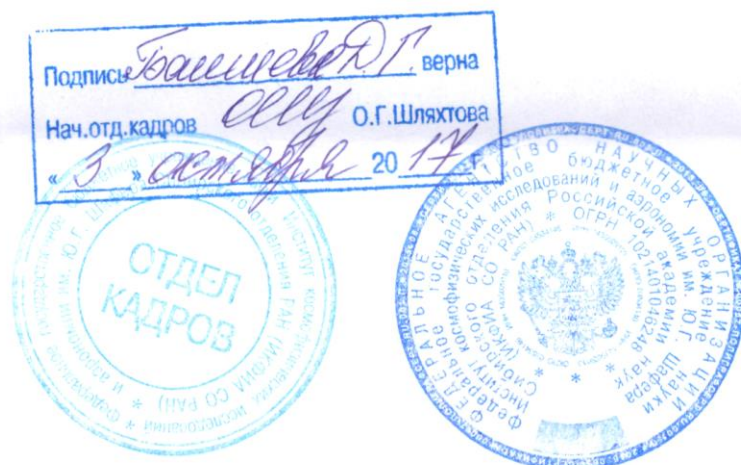 Подпись Баишева Д.Г. верна
Нач.отд.кадров О.Г.Шляхтова
« 3 » октября 20 17 г.
ОТДЕЛ
КАДРОВ
ФЕДЕРАЛЬНОЕ АГЕНТСТВО НАУЧНЫХ ОРГАНИЗАЦИЙ
Федеральное государственное бюджетное учреждение науки
Институт космофизических исследований и аэрономии им. Ю.Г. Шафера
Сибирского отделения Российской академии наук
(ИКФИА СО РАН) * ОГРН 1021401046248